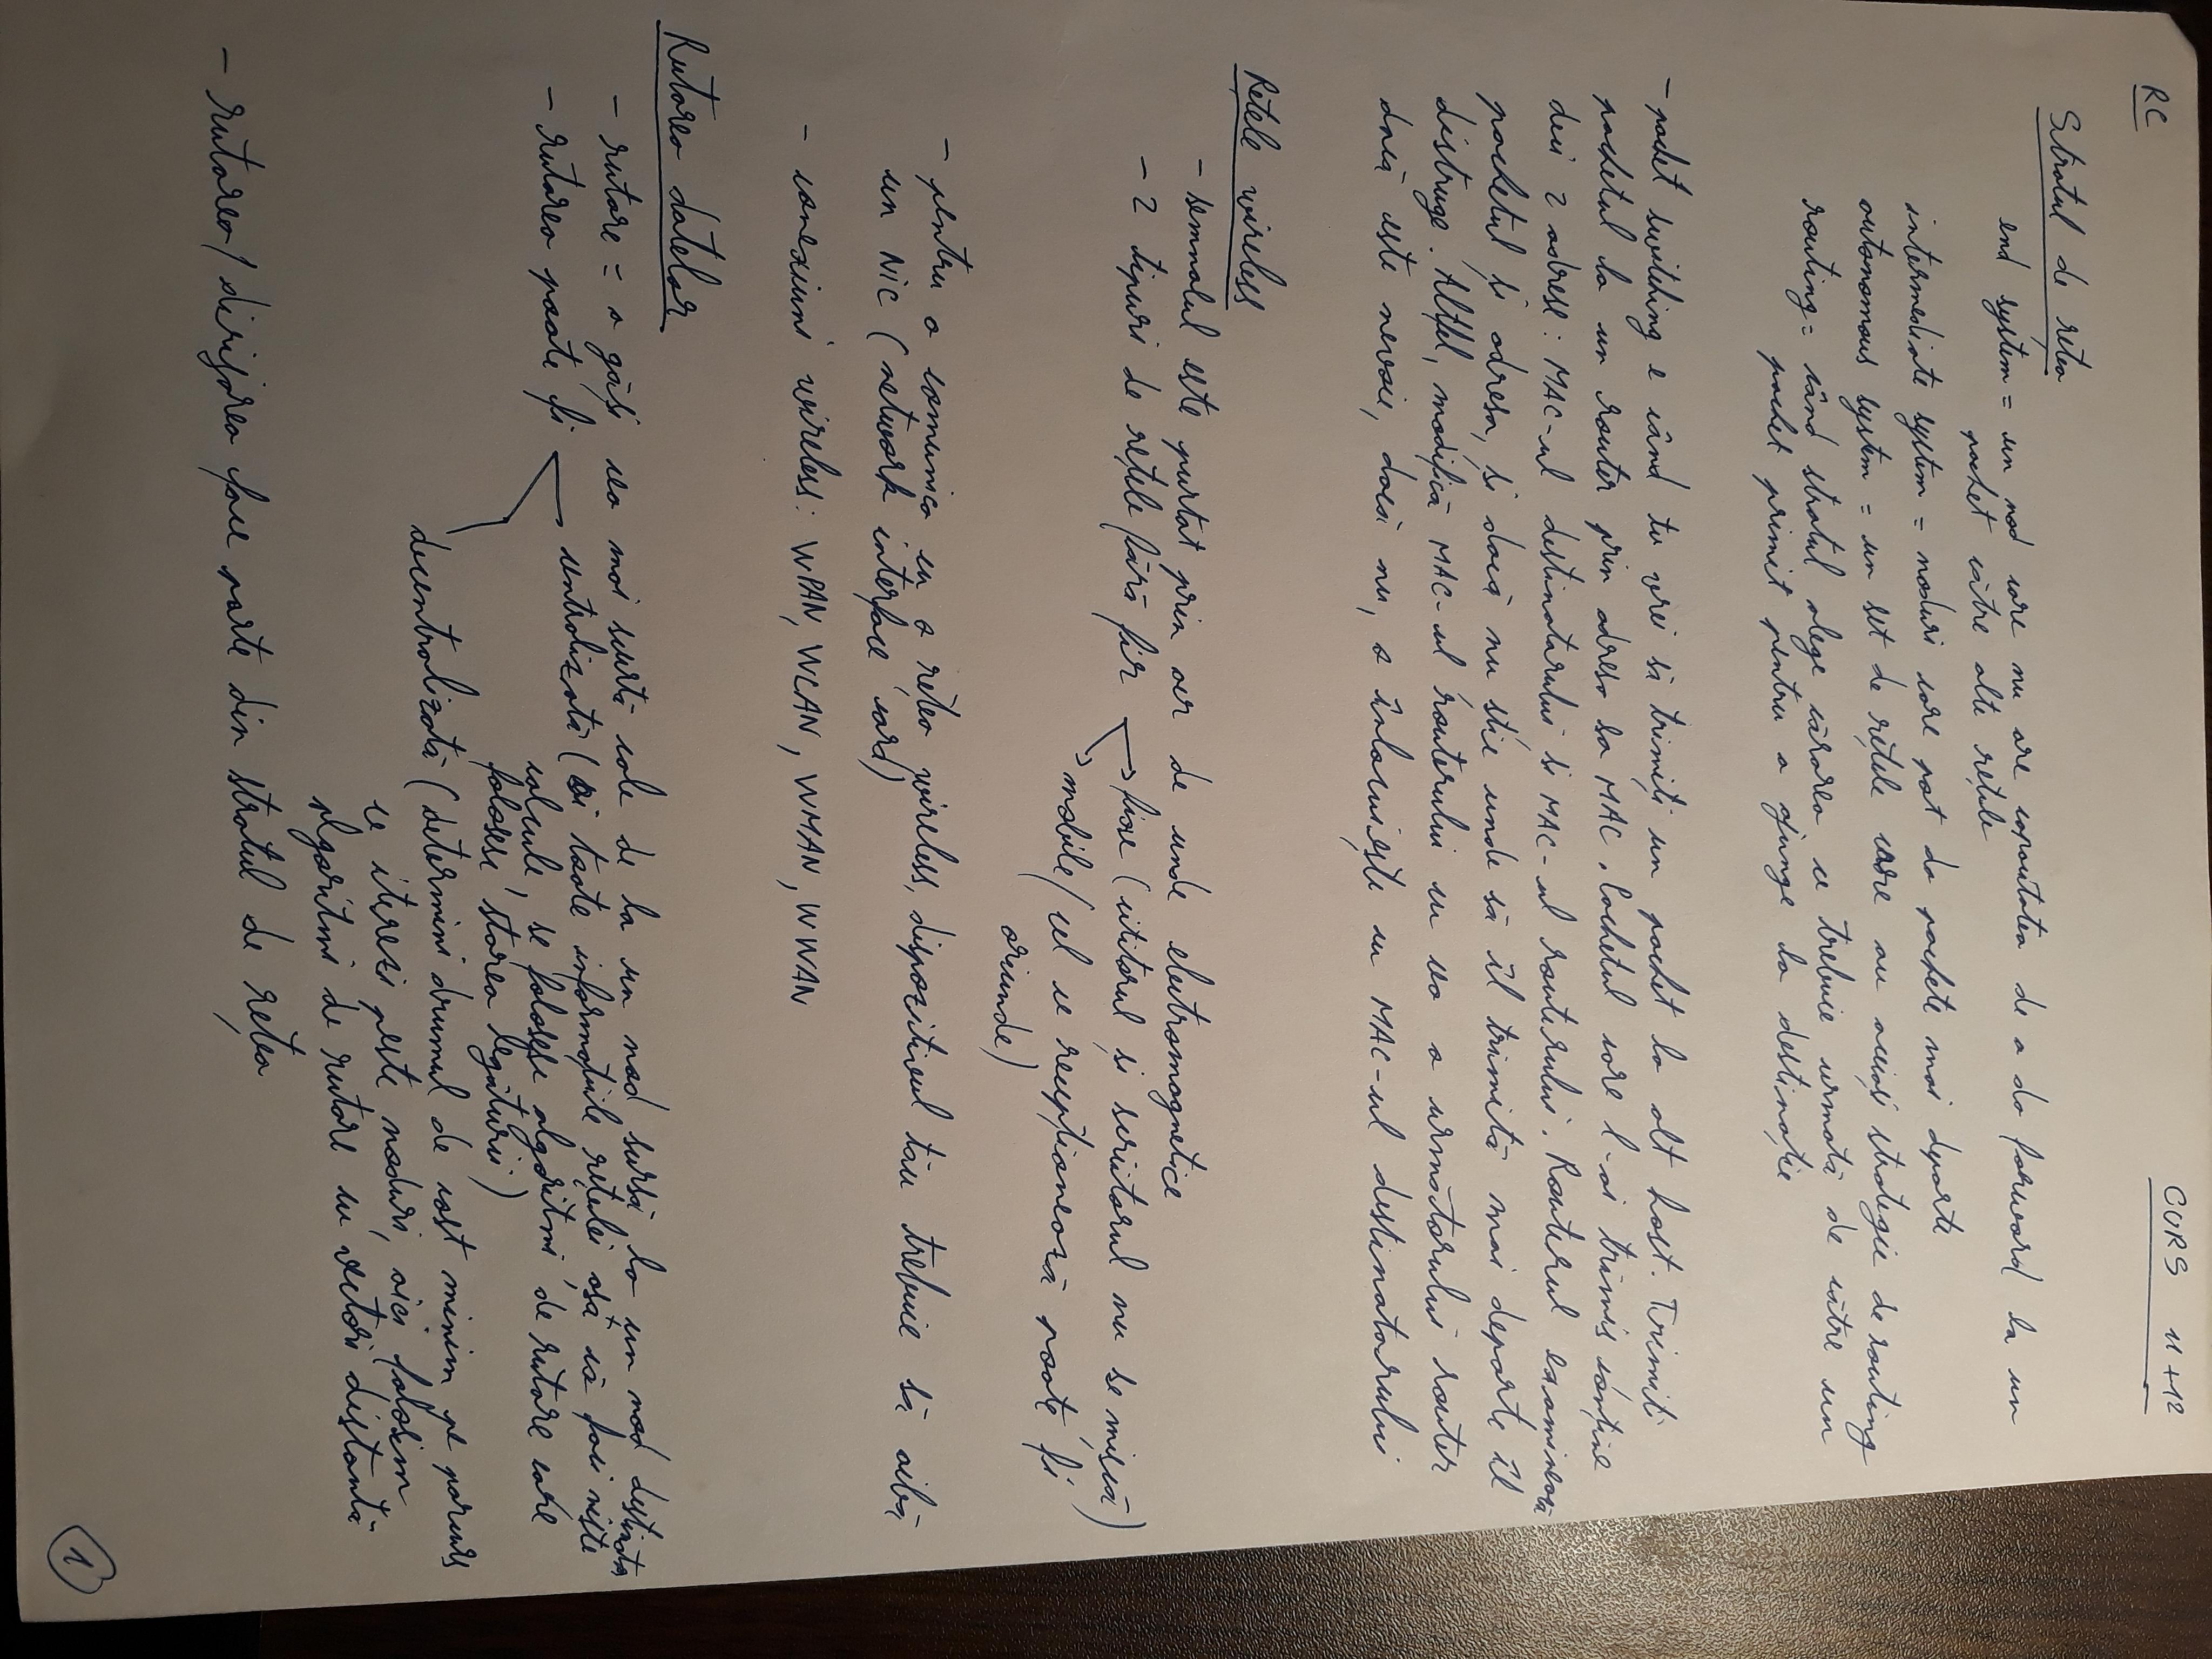 RC
CURS 11+12
Stratul de rețea
end system = un nod care nu are capacitatea de a da forward la un
pachet către alte rețele
intermediate system = noduri care pot da pachete mai departe
autonomous system = un set de rețele care au aceiași strategie de routing
routing = când stratul alege cărarea ce trebuie urmată de către un
pachet primit pentru a ajunge la destinație
- pachet switching e când tu vrei să trimiți un pachet la alt host. Trimiți
pachetul la un router prin adresa sa MAC. Pachetul care l-ai trimis conține
deci 2 adrese: MAC-ul destinatarului și MAC-ul routerului. Routerul examinează
pachetul și adresa, și dacă nu știe unde să îl trimită mai departe îl
distruge. Altfel, modifică MAC-ul routerului cu cea a următorului router
dacă este nevoie, dacă nu, o înlocuiește cu MAC-ul destinatarului
Rețele wireless
- semnalul este purtat prin aer de unde electromagnetice
- 2 tipuri de rețele fără fir → fixe (cititorul și scriitorul nu se mișcă)
→ mobile (cel ce recepționează poate fi
oriunde)
- pentru a comunica cu o rețea wireless, dispozitivul tău trebuie să aibă
un NIC (network interface card)
- conexiuni wireless: WPAN, WLAN, WMAN, WWAN
Rutarea datelor
- rutare = a găsi cea mai scurtă cale de la un nod sursă la un nod destinatar
- rutarea poate fi centralizată (ai toate informațiile rețelei așa că faci niște
calcule, se folosesc algoritmi de rutare care
folosesc starea legăturii)
decentralizată (determini drumul de cost minim pe parcurs
ce iterezi peste noduri, aici folosim
algoritmi de rutare cu vectori distanță
- rutarea/dirijarea face parte din stratul de rețea
1